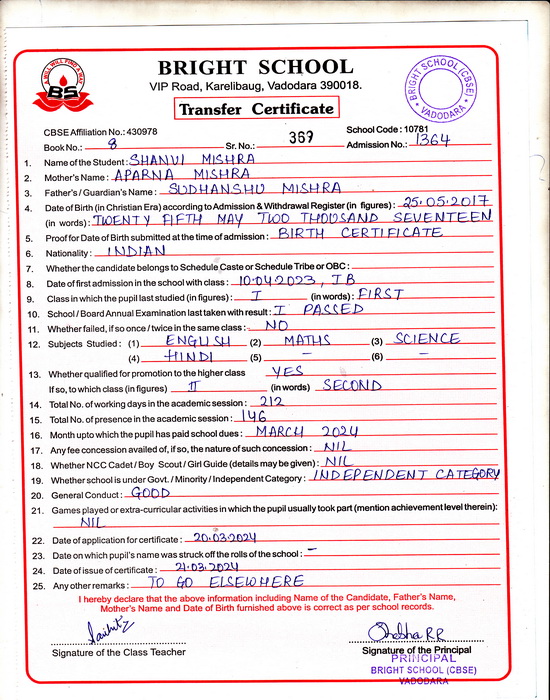 A WILL WILL FIND A WAY
BS
BRIGHT SCHOOL
VIP Road, Karelibaug, Vadodara 390018.
BRIGHT SCHOOL (CBSE) VADODARA
Transfer Certificate
CBSE Affiliation No.: 430978 School Code : 10781
Book No.: 8 Sr. No.: 367 Admission No.: 1364
1. Name of the Student : SHANVI MISHRA
2. Mother's Name : APARNA MISHRA
3. Father's / Guardian's Name : SUDHANSHU MISHRA
4. Date of Birth (in Christian Era) according to Admission & Withdrawal Register (in figures) : 25.05.2017
(in words) : TWENTY FIFTH MAY TWO THOUSAND SEVENTEEN
5. Proof for Date of Birth submitted at the time of admission : BIRTH CERTIFICATE
6. Nationality : INDIAN
7. Whether the candidate belongs to Schedule Caste or Schedule Tribe or OBC :
8. Date of first admission in the school with class : 10.04.2023, I B
9. Class in which the pupil last studied (in figures) : I (in words) : FIRST
10. School / Board Annual Examination last taken with result : I PASSED
11. Whether failed, if so once / twice in the same class : NO
12. Subjects Studied : (1) ENGLISH (2) MATHS (3) SCIENCE
(4) HINDI (5) – (6) –
13. Whether qualified for promotion to the higher class YES
If so, to which class (in figures) II (in words) SECOND
14. Total No. of working days in the academic session : 212
15. Total No. of presence in the academic session : 146
16. Month upto which the pupil has paid school dues : MARCH 2024
17. Any fee concession availed of, if so, the nature of such concession : NIL
18. Whether NCC Cadet / Boy Scout / Girl Guide (details may be given) : NIL
19. Whether school is under Govt. / Minority / Independent Category : INDEPENDENT CATEGORY
20. General Conduct : GOOD
21. Games played or extra-curricular activities in which the pupil usually took part (mention achievement level therein) :
NIL
22. Date of application for certificate : 20.03.2024
23. Date on which pupil's name was struck off the rolls of the school : –
24. Date of issue of certificate : 21.03.2024
25. Any other remarks : TO GO ELSEWHERE
I hereby declare that the above information including Name of the Candidate, Father's Name,
Mother's Name and Date of Birth furnished above is correct as per school records.
Signature of the Class Teacher
Signature of the Principal
PRINCIPAL
BRIGHT SCHOOL (CBSE)
VADODARA